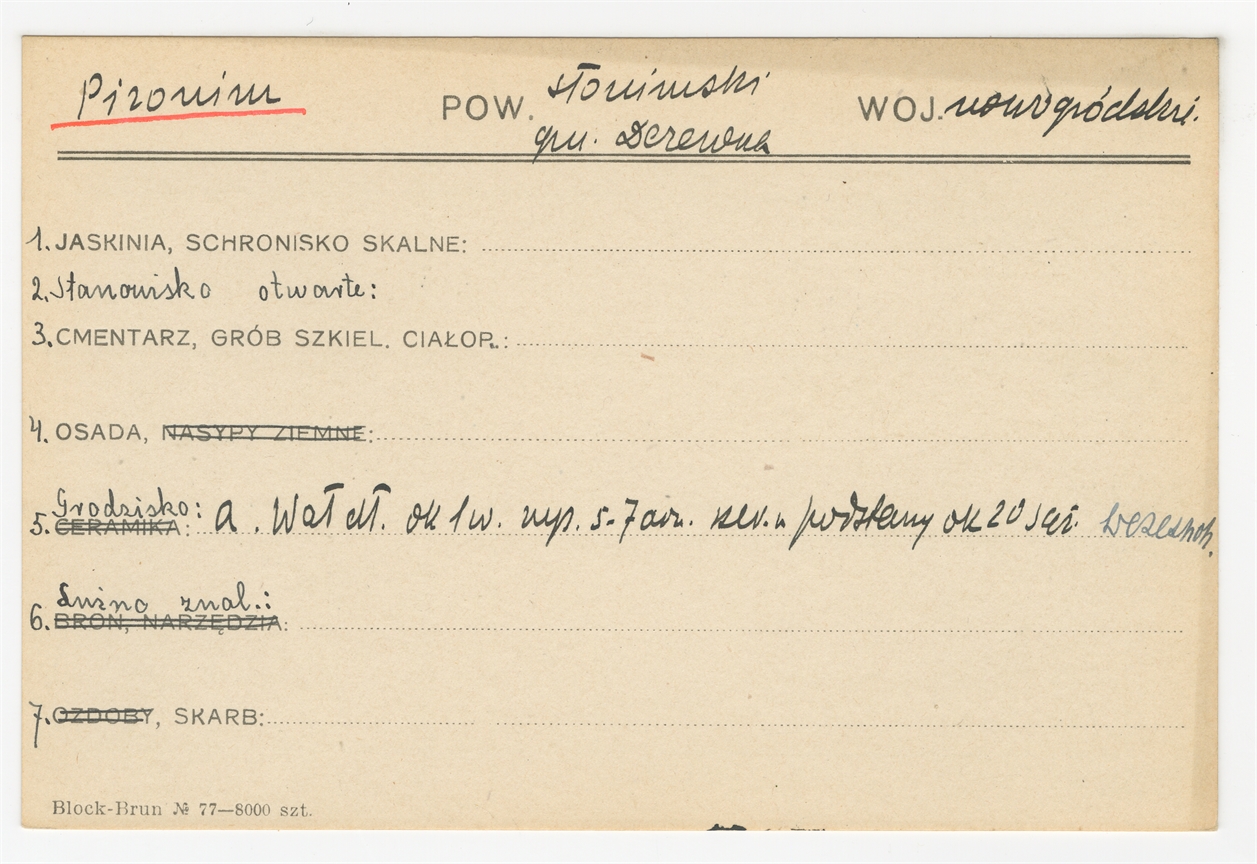 Pironim POW. słonimski WOJ. nowogródzkie.
gm. Derewna
1. JASKINIA, SCHRONISKO SKALNE:
2. Stanowisko otwarte:
3. CMENTARZ, GRÓB SZKIEL. CIAŁOP.:
4. OSADA, NASYPY ZIEMNE:
Grodzisko:
5. CERAMIKA: a. Wał dł. ok 1 w. wys. 5-7 arsz. szer. podstawy ok 20 sąż.
Luźno znal.:
6. BROŃ, NARZĘDZIA:
7. OZDOBY, SKARB:
Block-Brun № 77—8000 szt.